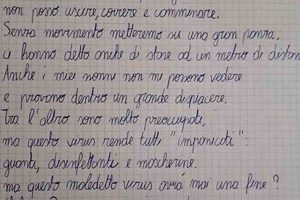 non posso uscire, correre e camminare.
Senza movimento metteremo su una gran panza,
ci hanno detto anche di stare ad un metro di distan
Anche i miei nonni non mi possono vedere
e provano dentro un grande dispiacere.
Tra l'altro sono molto preoccupati,
ma questo virus rende tutti "impanicati":
guanti, disinfettanti e mascherine.
ma questo maledetto virus avrà mai una fine?